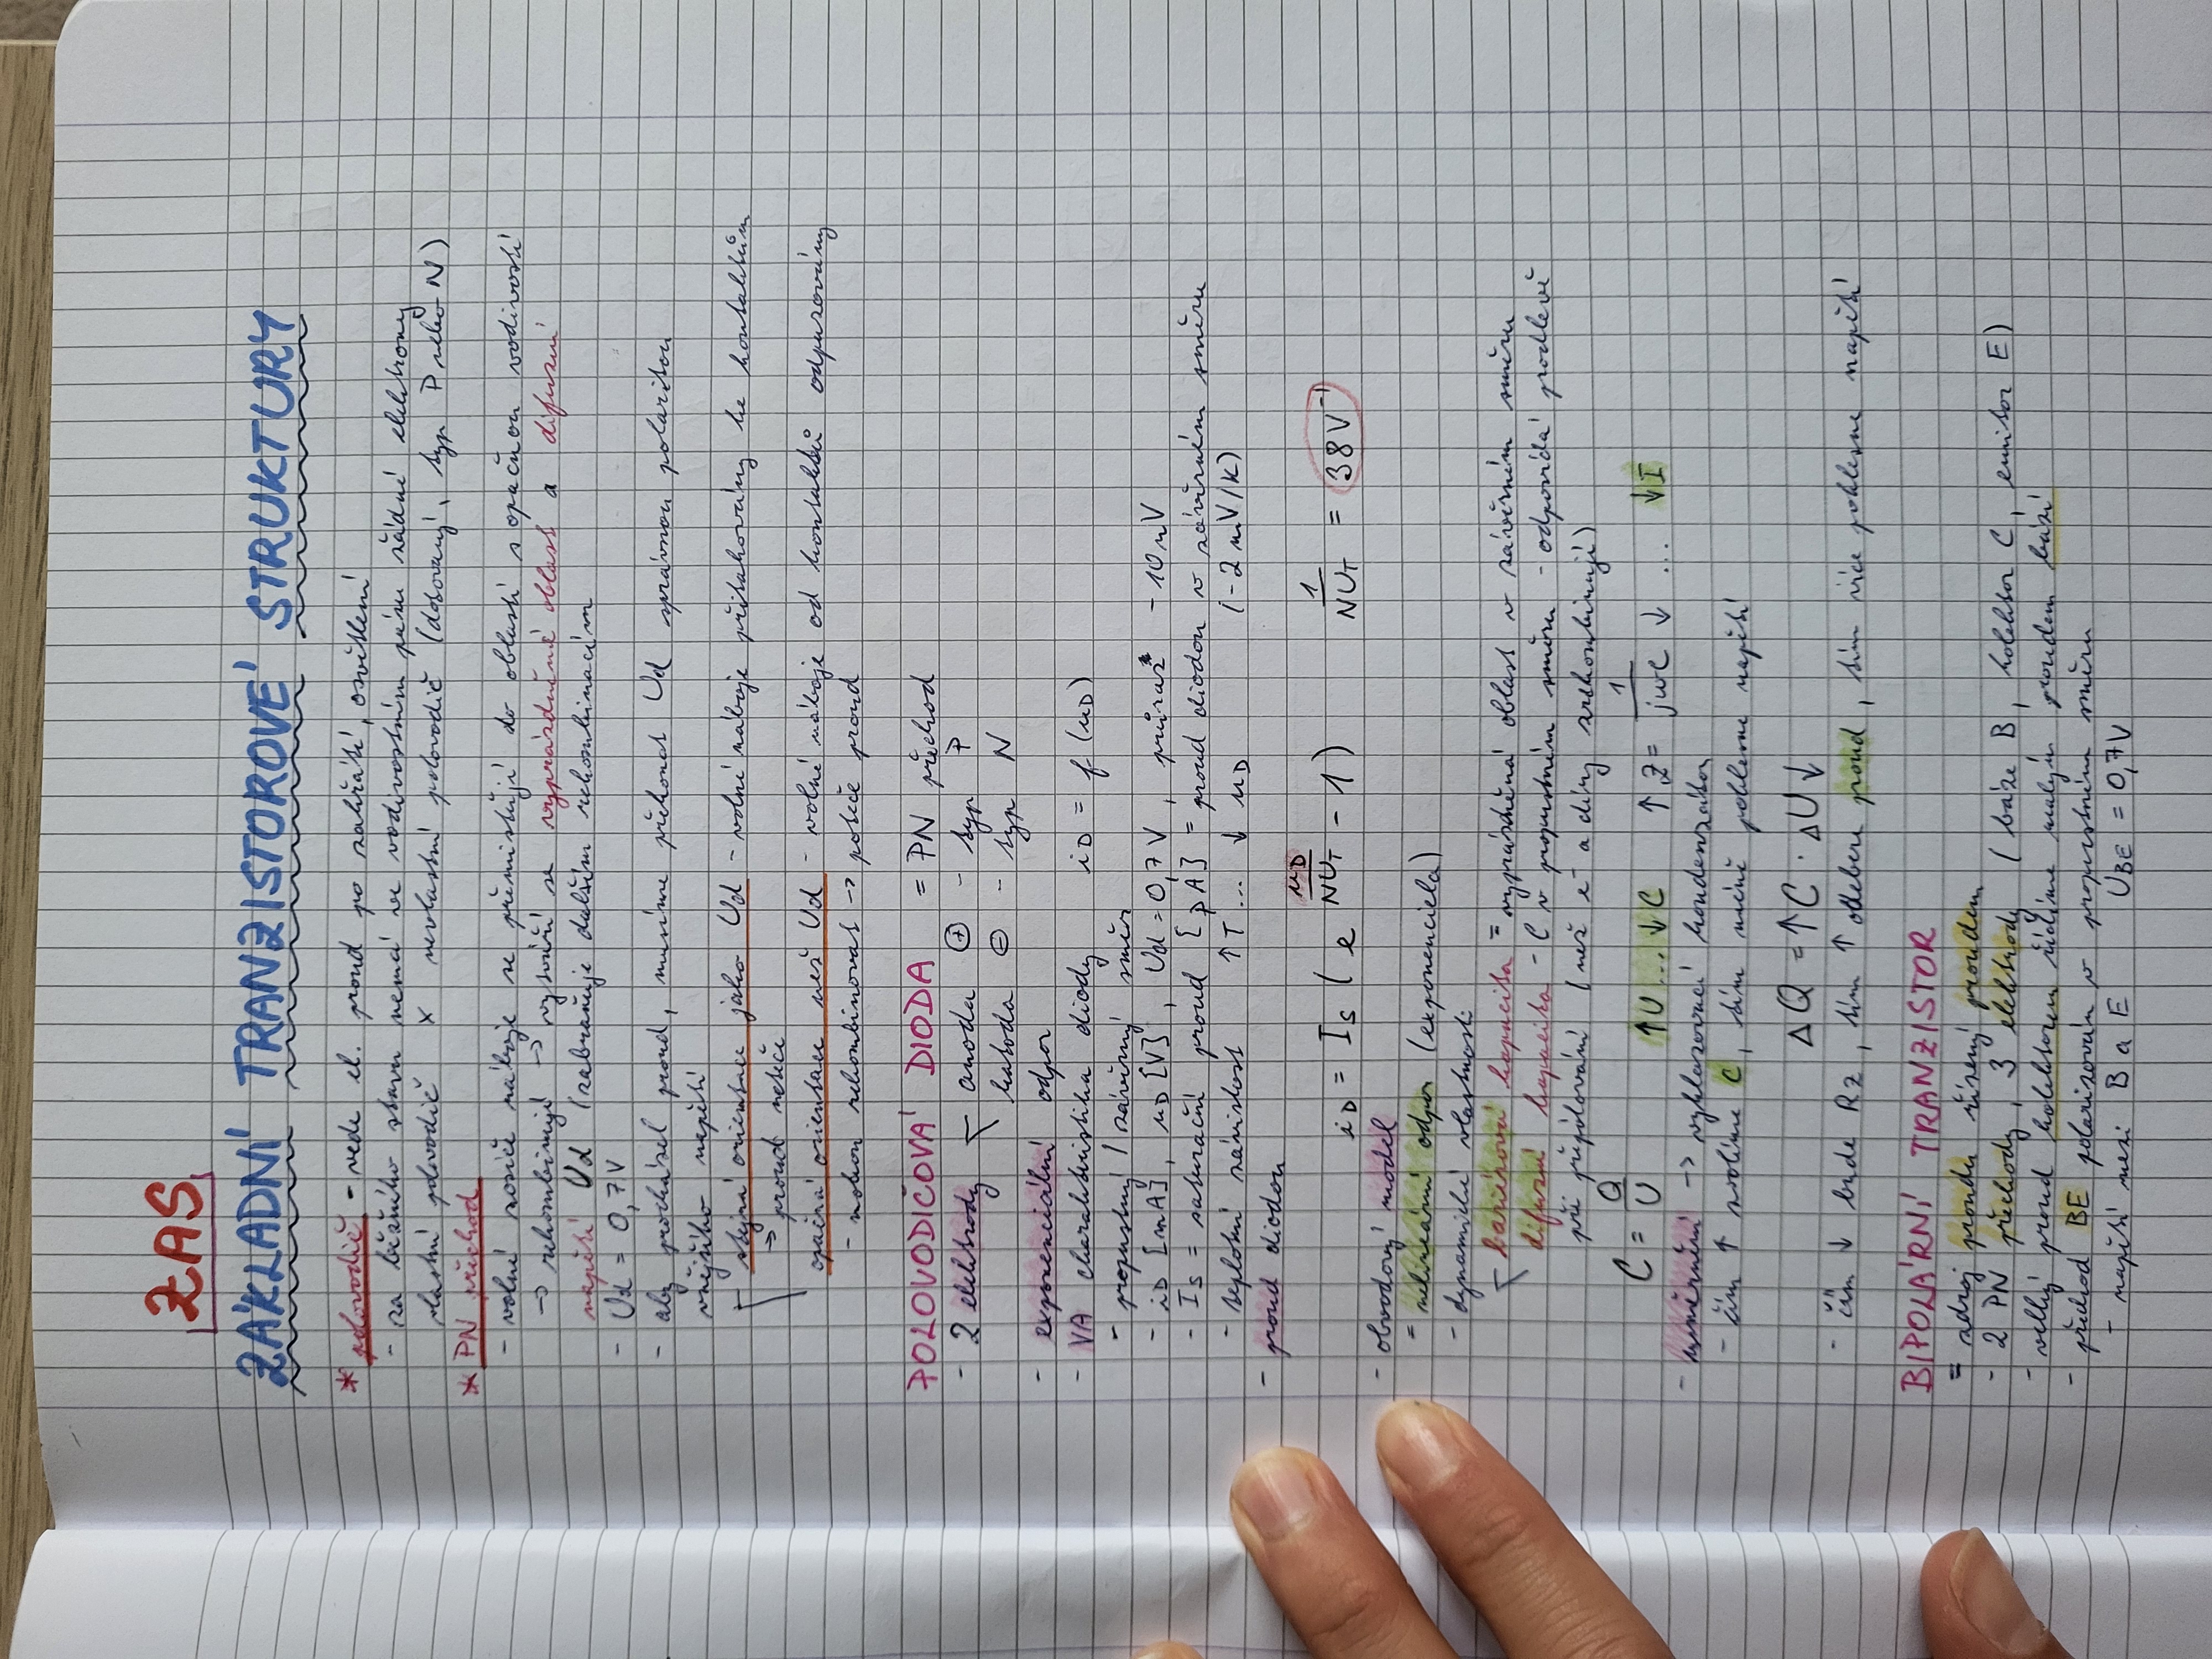 ZAS
ZÁKLADNÍ TRANZISTOROVÉ STRUKTURY
* polovodič - vede el. proud po zahřátí, osvětlení
- za běžného stavu nemá ve vodivostním pásu žádné elektrony
vlastní polovodič × nevlastní polovodič (dotovaný, typ P nebo N)
* PN přechod
- volné nosiče náboje se přemisťují do oblasti s opačnou vodivostí
→ rekombinují → vytváří se vyprázdněná oblast a difuzní
napětí Ud (zabraňuje dalším rekombinacím
- Ud = 0,7V
- aby procházel proud, musíme překonat Ud správnou polaritou
vnějšího napětí
stejná orientace jako Ud - volné náboje přitahovány ke kontaktům
→ proud neteče
opačná orientace než Ud - volné náboje od kontaktů odpuzovány
- mohou rekombinovat → poteče proud
POLOVODIČOVÁ DIODA = PN přechod
- 2 elektrody - anoda ⊕ - typ P
katoda ⊖ - typ N
- exponenciální odpor
- VA charakteristika diody iD = f (uD)
- propustný / závěrný směr
- iD [mA], uD [V], Ud = 0,7V, průraz -10 nV
- IS = saturační proud [pA] = proud diodou v závěrném směru
- teplotní závislost ↑T... ↓ uD (-2 mV/K)
- proud diodou
iD = IS ( e^(uD/NUT) - 1 ) 1/NUT = 38V⁻¹
- obvodový model
= nelineární odpor (exponenciela)
- dynamické vlastnosti
bariérová kapacita = vyprázdněná oblast v závěrném směru
difuzní kapacita - C v propustném směru - odpovídá prodlevě
při přepólování (než e⁻ a díry zrekombinují)
C = Q/U ↑U ... ↓C ↑Z = 1/jωC ↓ ... ↓I
- usměrnění → vyhlazovací kondenzátor
- čím ↑ zvolíme C, tím méně poklesne napětí
ΔQ = ↑C · ΔU↓
- čím ↓ bude Rz, tím ↑ odebere proud, tím více poklesne napětí
BIPOLÁRNÍ TRANZISTOR
= zdroj proudu řízený proudem
- 2 PN přechody, 3 elektrody (báze B, kolektor C, emitor E)
- velký proud kolektorem řídíme malým proudem bází
- přechod BE polarizován v propustném směru
- napětí mezi B a E UBE = 0,7V